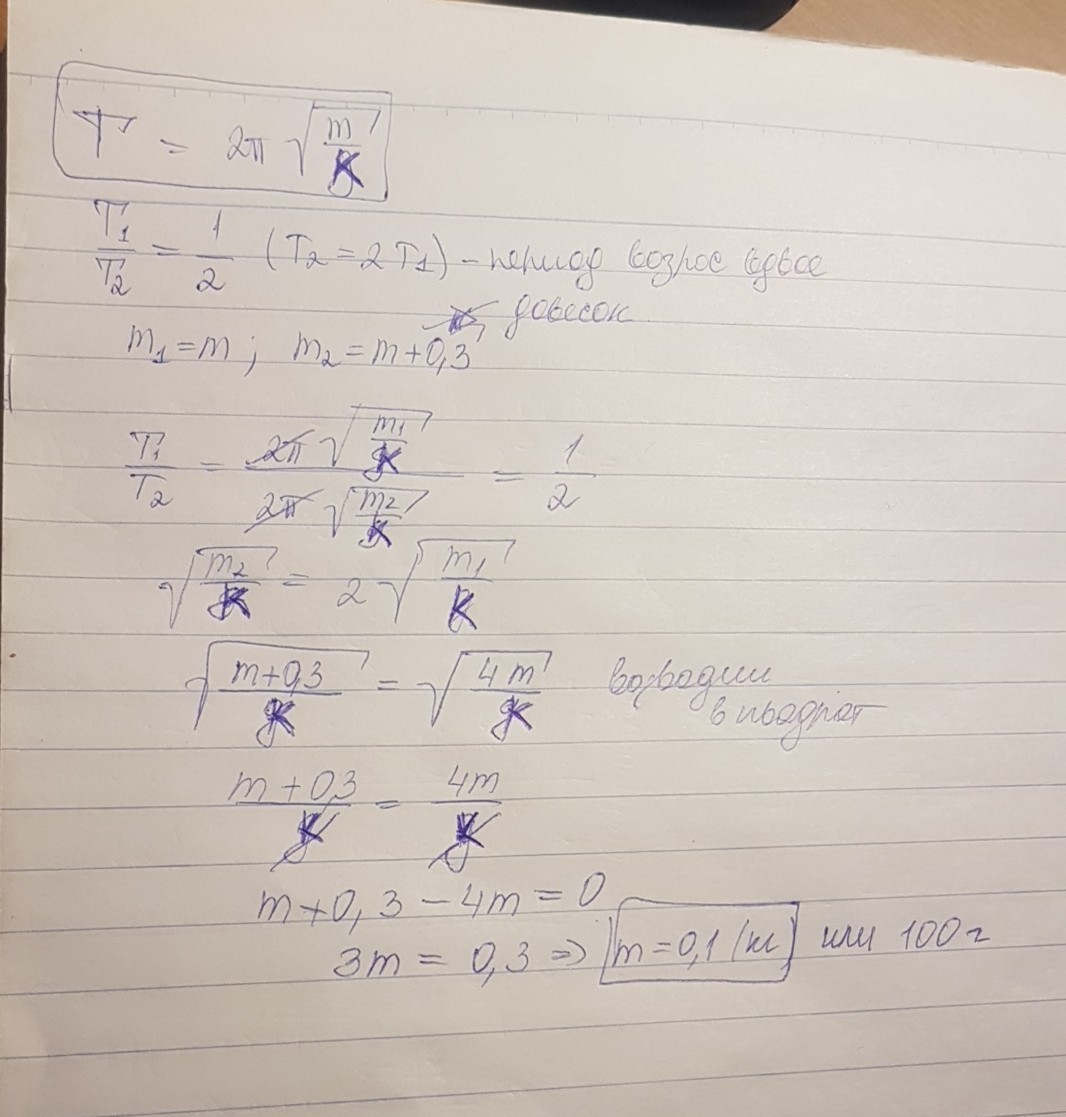 T = 2π √(m/k)
T₁/T₂ = 1/2 (T₂ = 2T₁) – период возрос вдвое
довесок
m₁ = m ; m₂ = m + 0,3
T₁/T₂ = 2π √(m₁/k) / 2π √(m₂/k) = 1/2
√(m₂/k) = 2 √(m₁/k)
√((m+0,3)/k) = √(4m/k) возводим
в квадрат
(m + 0,3)/k = 4m/k
m + 0,3 – 4m = 0
3m = 0,3 => m = 0,1 (кг) или 100 г